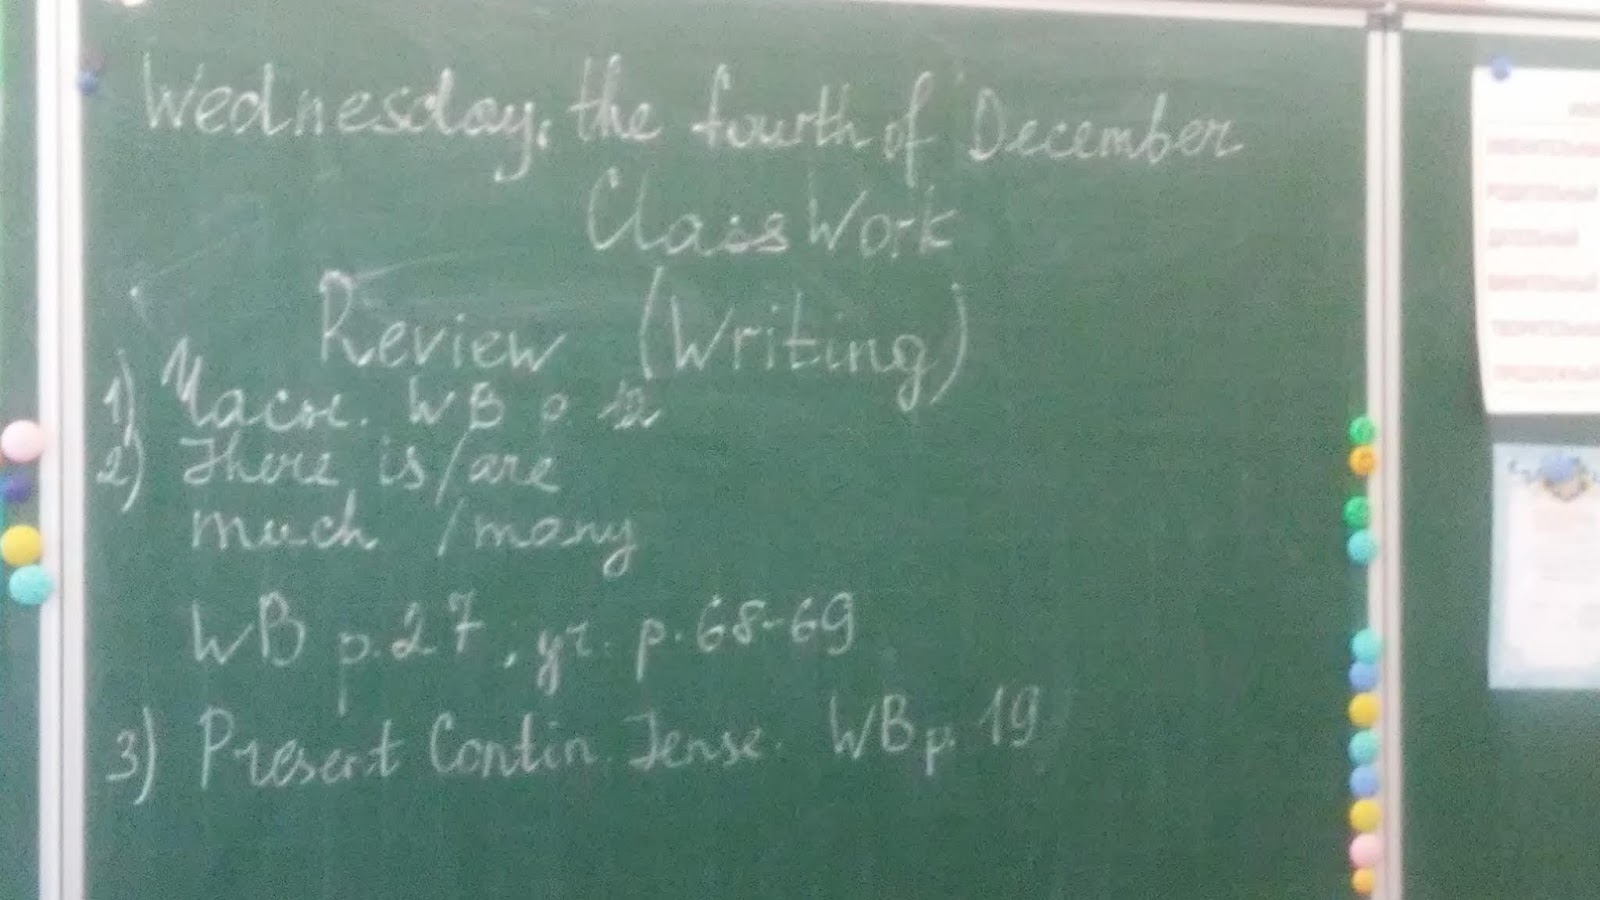 Wednesday, the fourth of December
Class Work
Review (Writing)
1) Часы. WB p.
2) There is/are
much /many
WB p.27, уч. p.68-69
3) Present Contin. Tense. WB p. 19
РОДИТЕЛЬНЫЙ
ДАТЕЛЬНЫЙ
ВИНИТЕЛЬНЫЙ
ТВОРИТЕЛЬНЫ
ПРЕДЛОЖНЫ